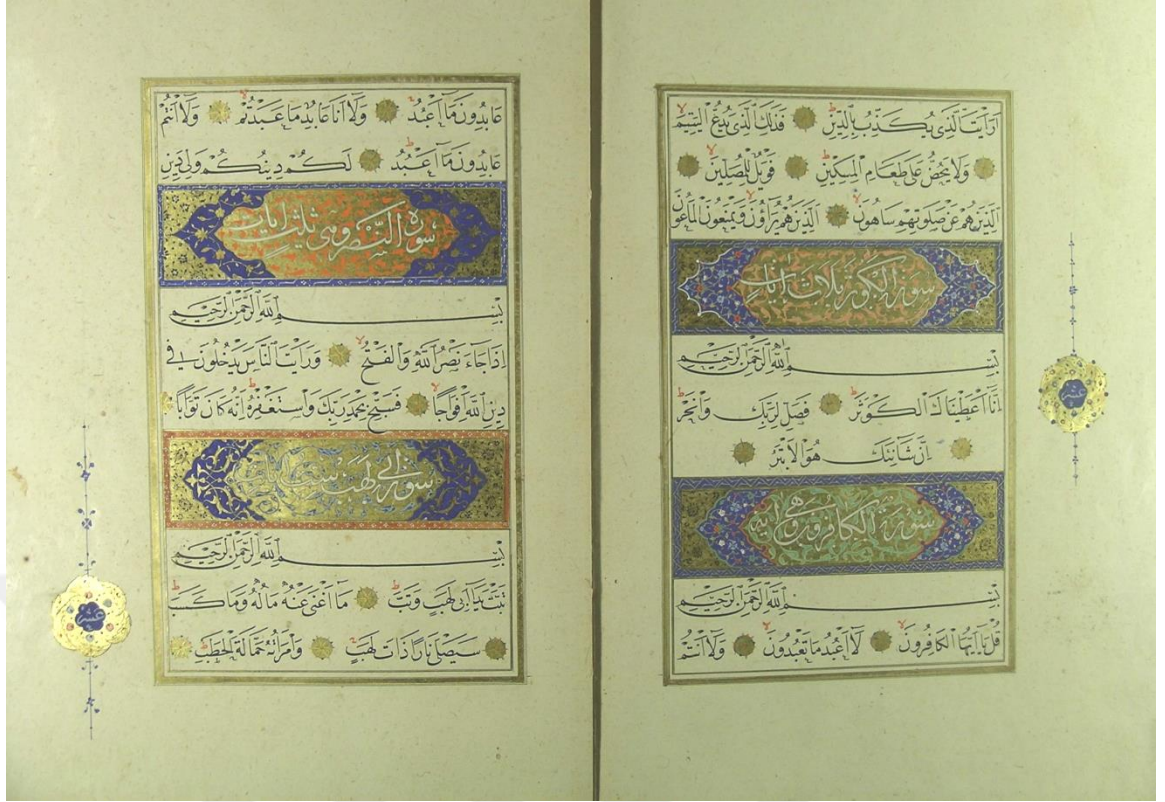 اَرَاَيْتَ الَّذِى يُكَذِّبُ بِالدِّينِ فَذٰلِكَ الَّذِى يَدُعُّ الْيَتِيمَ
وَلَا يَحُضُّ عَلٰى طَعَامِ الْمِسْكِينِ فَوَيْلٌ لِلْمُصَلِّينَ
اَلَّذِينَ هُمْ عَنْ صَلَوتِهِمْ سَاهُونَ اَلَّذِينَ هُمْ يُرَاؤُنَ وَيَمْنَعُونَ الْمَاعُونَ
سورة الكوثر ثلاث آيات
بِسْمِ اللّٰهِ الرَّحْمٰنِ الرَّحِيمِ
اِنَّا اَعْطَيْنَاكَ الْكَوْثَرَ فَصَلِّ لِرَبِّكَ وَانْحَرْ
اِنَّ شَانِئَكَ هُوَ الْاَبْتَرُ
سورة الكافرون وهى آية
بِسْمِ اللّٰهِ الرَّحْمٰنِ الرَّحِيمِ
قُلْ يَا اَيُّهَا الْكَافِرُونَ لَا اَعْبُدُ مَا تَعْبُدُونَ وَلَا اَنْتُمْ
عشر
عَابِدُونَ مَا اَعْبُدُ وَلَا اَنَا عَابِدٌ مَا عَبَدْتُمْ وَلَا اَنْتُمْ
عَابِدُونَ مَا اَعْبُدُ لَكُمْ دِينُكُمْ وَلِىَ دِينِ
سورة النصر وهى ثلث آيات
بِسْمِ اللّٰهِ الرَّحْمٰنِ الرَّحِيمِ
اِذَا جَاءَ نَصْرُ اللّٰهِ وَالْفَتْحُ وَرَاَيْتَ النَّاسَ يَدْخُلُونَ فِى
دِينِ اللّٰهِ اَفْوَاجًا فَسَبِّحْ بِحَمْدِ رَبِّكَ وَاسْتَغْفِرْهُ اِنَّهُ كَانَ تَوَّابًا
سورة ابى لهب
بِسْمِ اللّٰهِ الرَّحْمٰنِ الرَّحِيمِ
تَبَّتْ يَدَا اَبِى لَهَبٍ وَتَبَّ مَا اَغْنٰى عَنْهُ مَالُهُ وَمَا كَسَبَ
سَيَصْلٰى نَارًا ذَاتَ لَهَبٍ وَامْرَاَتُهُ حَمَّالَةَ الْحَطَبِ
عشر